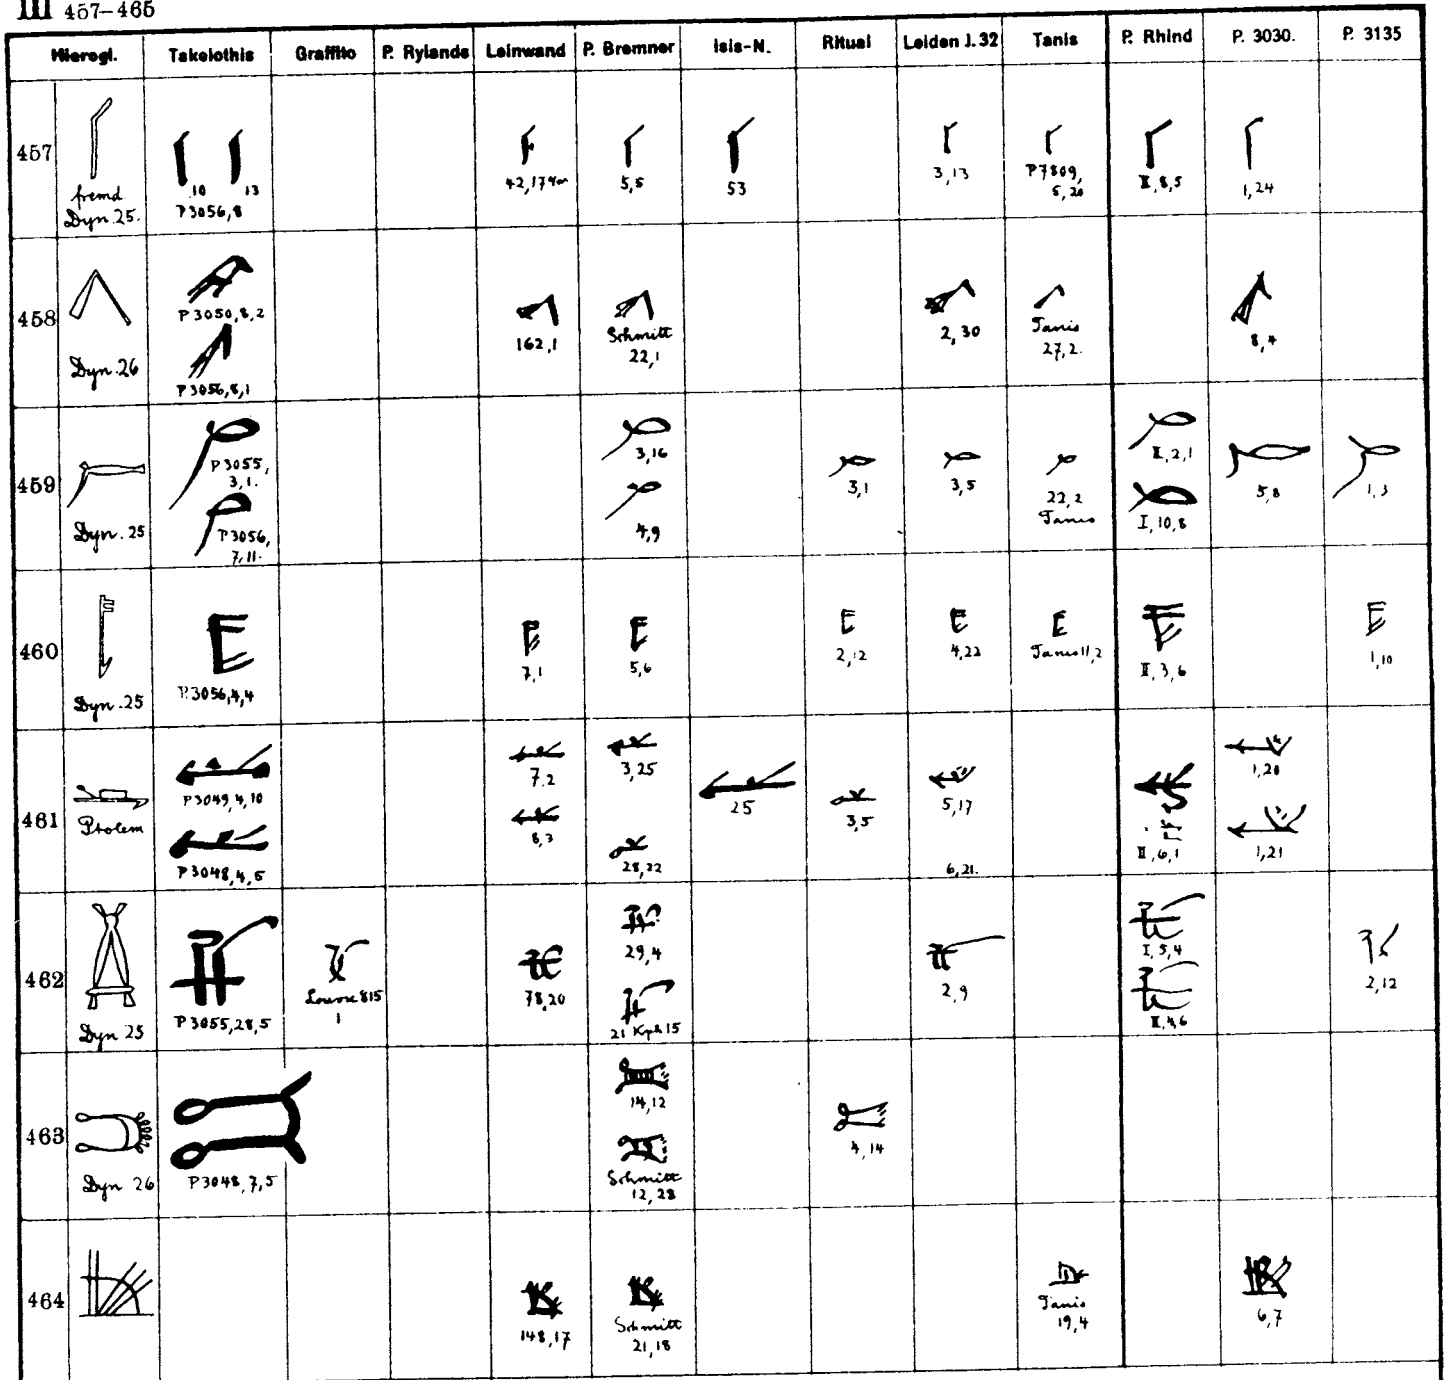 III 457–465
Hierogl. Takelothis Graffito P. Rylands Leinwand P. Bremner Isis-N. Ritual Leiden J. 32 Tanis P. Rhind P. 3030. P. 3135
457
fremd
Dyn. 25.
10 13
P3056,8
5,5
53
3,13
P7809,
5,20
II,8,5
1,24
458
Dyn. 26
P3050,8,2
P3056,8,1
162,1
Schmitt
22,1
2,30
Tanis
27,2.
8,4
459
Dyn. 25
P3055,
3,1.
P3056,
7,11.
3,16
4,9
3,1
3,5
22,2
Tanis
II,2,1
I,10,8
5,8
1,3
460
Dyn. 25
P.3056,4,4
7,1
5,6
2,12
4,22
Tanis 11,2
II,3,6
1,10
461
Ptolem
P3049,4,10
P3048,4,5
7,2
8,3
3,25
28,22
25
3,5
5,17
6,21.
II,6,1
1,20
1,21
462
Dyn 25
P3055,28,5
Louvre 815
1
78,20
29,4
21 Kph 15
2,9
I,5,4
II,4,6
2,12
463
Dyn 26
P3048,7,5
14,12
Schmitt
12,28
4,14
464
148,17
Schmitt
21,18
Tanis
19,4
6,7